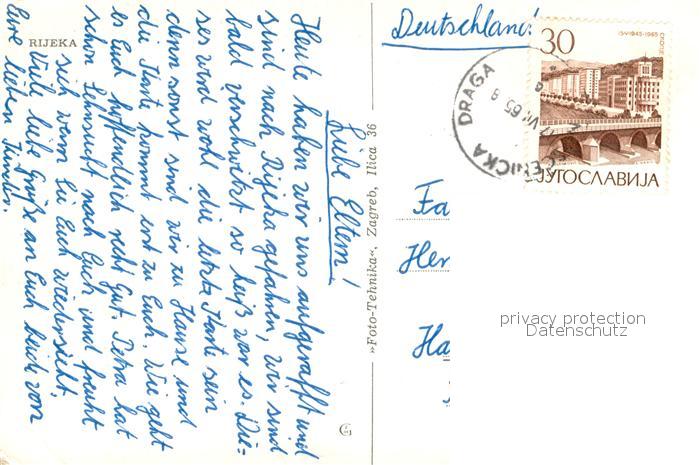 RIJEKA
Liebe Eltern!
Heute haben wir uns aufgerafft und
sind nach Rijeka gefahren, wir sind
bald verschwitzt so heiß war es. Die-
ses wird wohl die letzte Karte sein
denn sonst sind wir zu Hause und
die Karte kommt erst zu Euch. Wie geht
es Euch hoffendlich recht gut. Petra hat
schon Sehnsucht nach Euch und freuht
sich wenn Sie Euch wiedersieht.
Viele liebe Grüße an Euch beide von
Eure lieben Kinder.
»Foto-Tehnika«, Zagreb, Ilica 36
Deutschland!
30
1945-1965
СКОПЈЕ
ЈУГОСЛАВИЈА
DRAGA
65 8
Fa
Her
Ha
privacy protection
Datenschutz